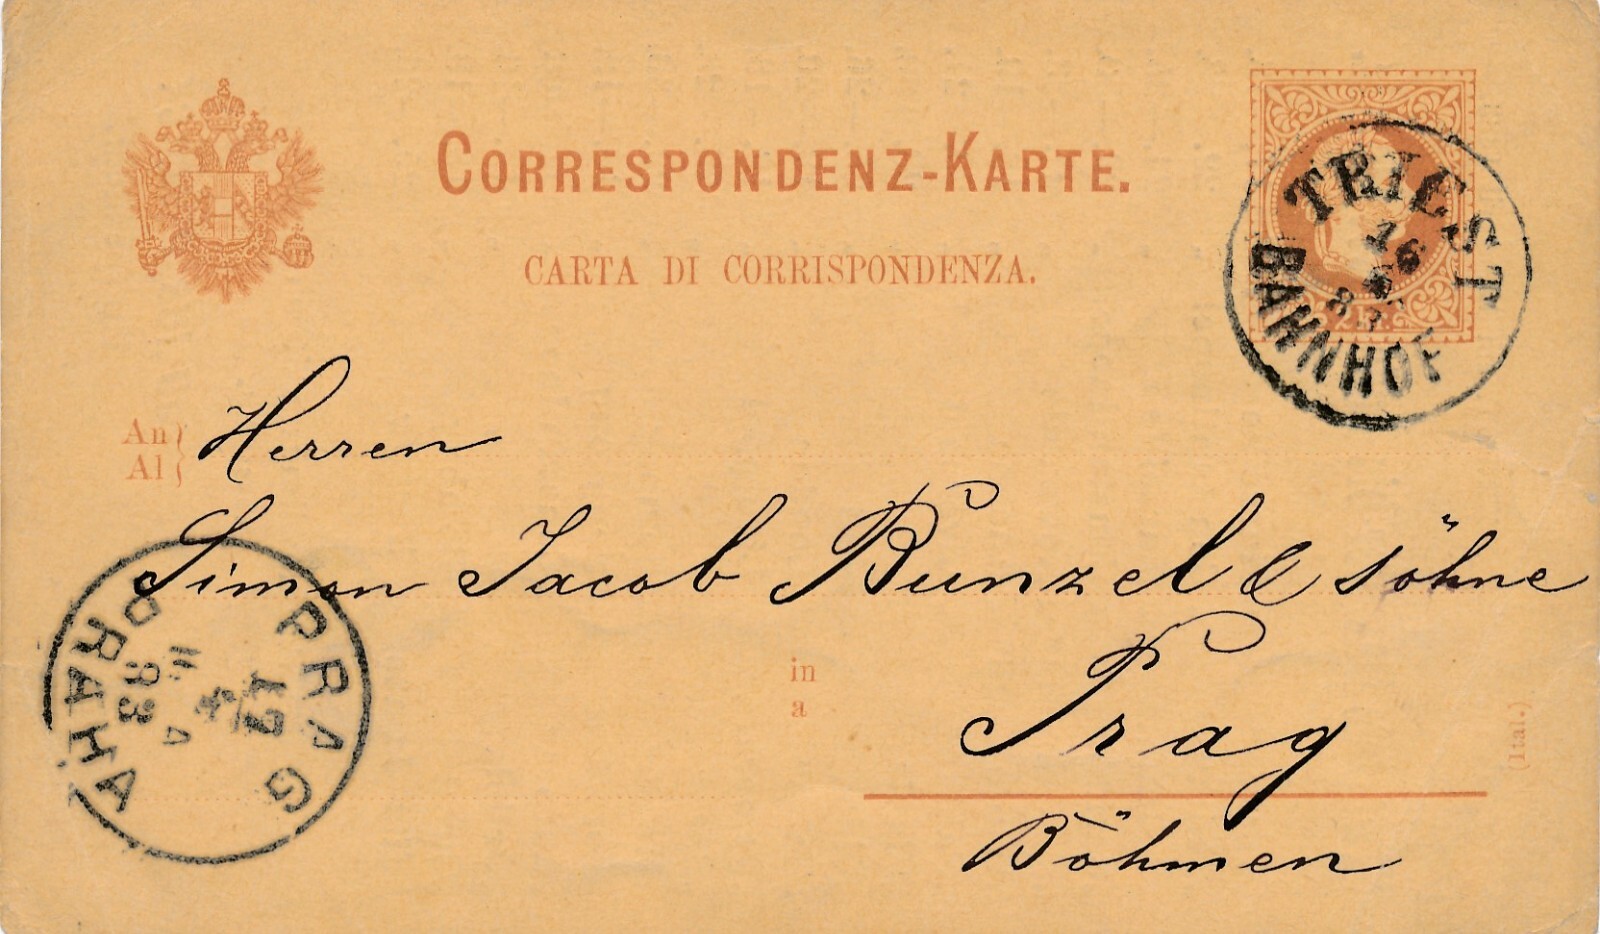 CORRESPONDENZ-KARTE.
CARTA DI CORRISPONDENZA.
TRIEST
16
83
BAHNHOF
2 Kr.
An
Al
Herren
Simon Jacob Bunzel & Söhne
in
a
Prag
Böhmen
(Ital.)
PRAG
17
4
83
PRAHA